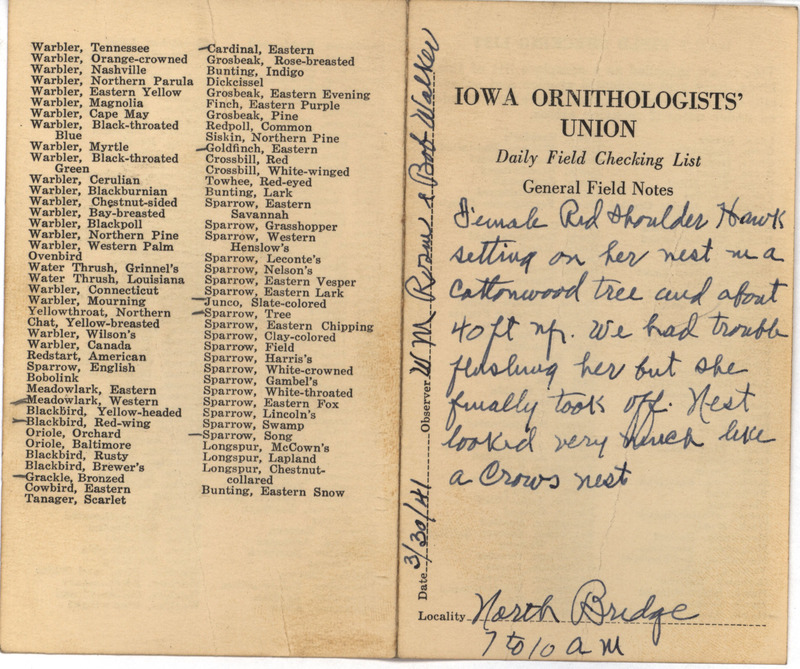 Warbler, Tennessee
Warbler, Orange-crowned
Warbler, Nashville
Warbler, Northern Parula
Warbler, Eastern Yellow
Warbler, Magnolia
Warbler, Cape May
Warbler, Black-throated
Blue
Warbler, Myrtle
Warbler, Black-throated
Green
Warbler, Cerulian
Warbler, Blackburnian
Warbler, Chestnut-sided
Warbler, Bay-breasted
Warbler, Blackpoll
Warbler, Northern Pine
Warbler, Western Palm
Ovenbird
Water Thrush, Grinnel's
Water Thrush, Louisiana
Warbler, Connecticut
Warbler, Mourning
Yellowthroat, Northern
Chat, Yellow-breasted
Warbler, Wilson's
Warbler, Canada
Redstart, American
Sparrow, English
Bobolink
Meadowlark, Eastern
Meadowlark, Western
Blackbird, Yellow-headed
Blackbird, Red-wing
Oriole, Orchard
Oriole, Baltimore
Blackbird, Rusty
Blackbird, Brewer's
Grackle, Bronzed
Cowbird, Eastern
Tanager, Scarlet
Cardinal, Eastern
Grosbeak, Rose-breasted
Bunting, Indigo
Dickcissel
Grosbeak, Eastern Evening
Finch, Eastern Purple
Grosbeak, Pine
Redpoll, Common
Siskin, Northern Pine
Goldfinch, Eastern
Crossbill, Red
Crossbill, White-winged
Towhee, Red-eyed
Bunting, Lark
Sparrow, Eastern
Savannah
Sparrow, Grasshopper
Sparrow, Western
Henslow's
Sparrow, Leconte's
Sparrow, Nelson's
Sparrow, Eastern Vesper
Sparrow, Eastern Lark
Junco, Slate-colored
Sparrow, Tree
Sparrow, Eastern Chipping
Sparrow, Clay-colored
Sparrow, Field
Sparrow, Harris's
Sparrow, White-crowned
Sparrow, Gambel's
Sparrow, White-throated
Sparrow, Eastern Fox
Sparrow, Lincoln's
Sparrow, Swamp
Sparrow, Song
Longspur, McCown's
Longspur, Lapland
Longspur, Chestnut-
collared
Bunting, Eastern Snow
Date 3/30/41 Observer Wm & Bob Walker
IOWA ORNITHOLOGISTS'
UNION
Daily Field Checking List
General Field Notes
Female Red Shoulder Hawk
setting on her nest in a
Cottonwood tree and about
40 ft up. We had trouble
flushing her but she
finally took off. Nest
looked very much like
a Crows nest
Locality North Bridge
7 to 10 am